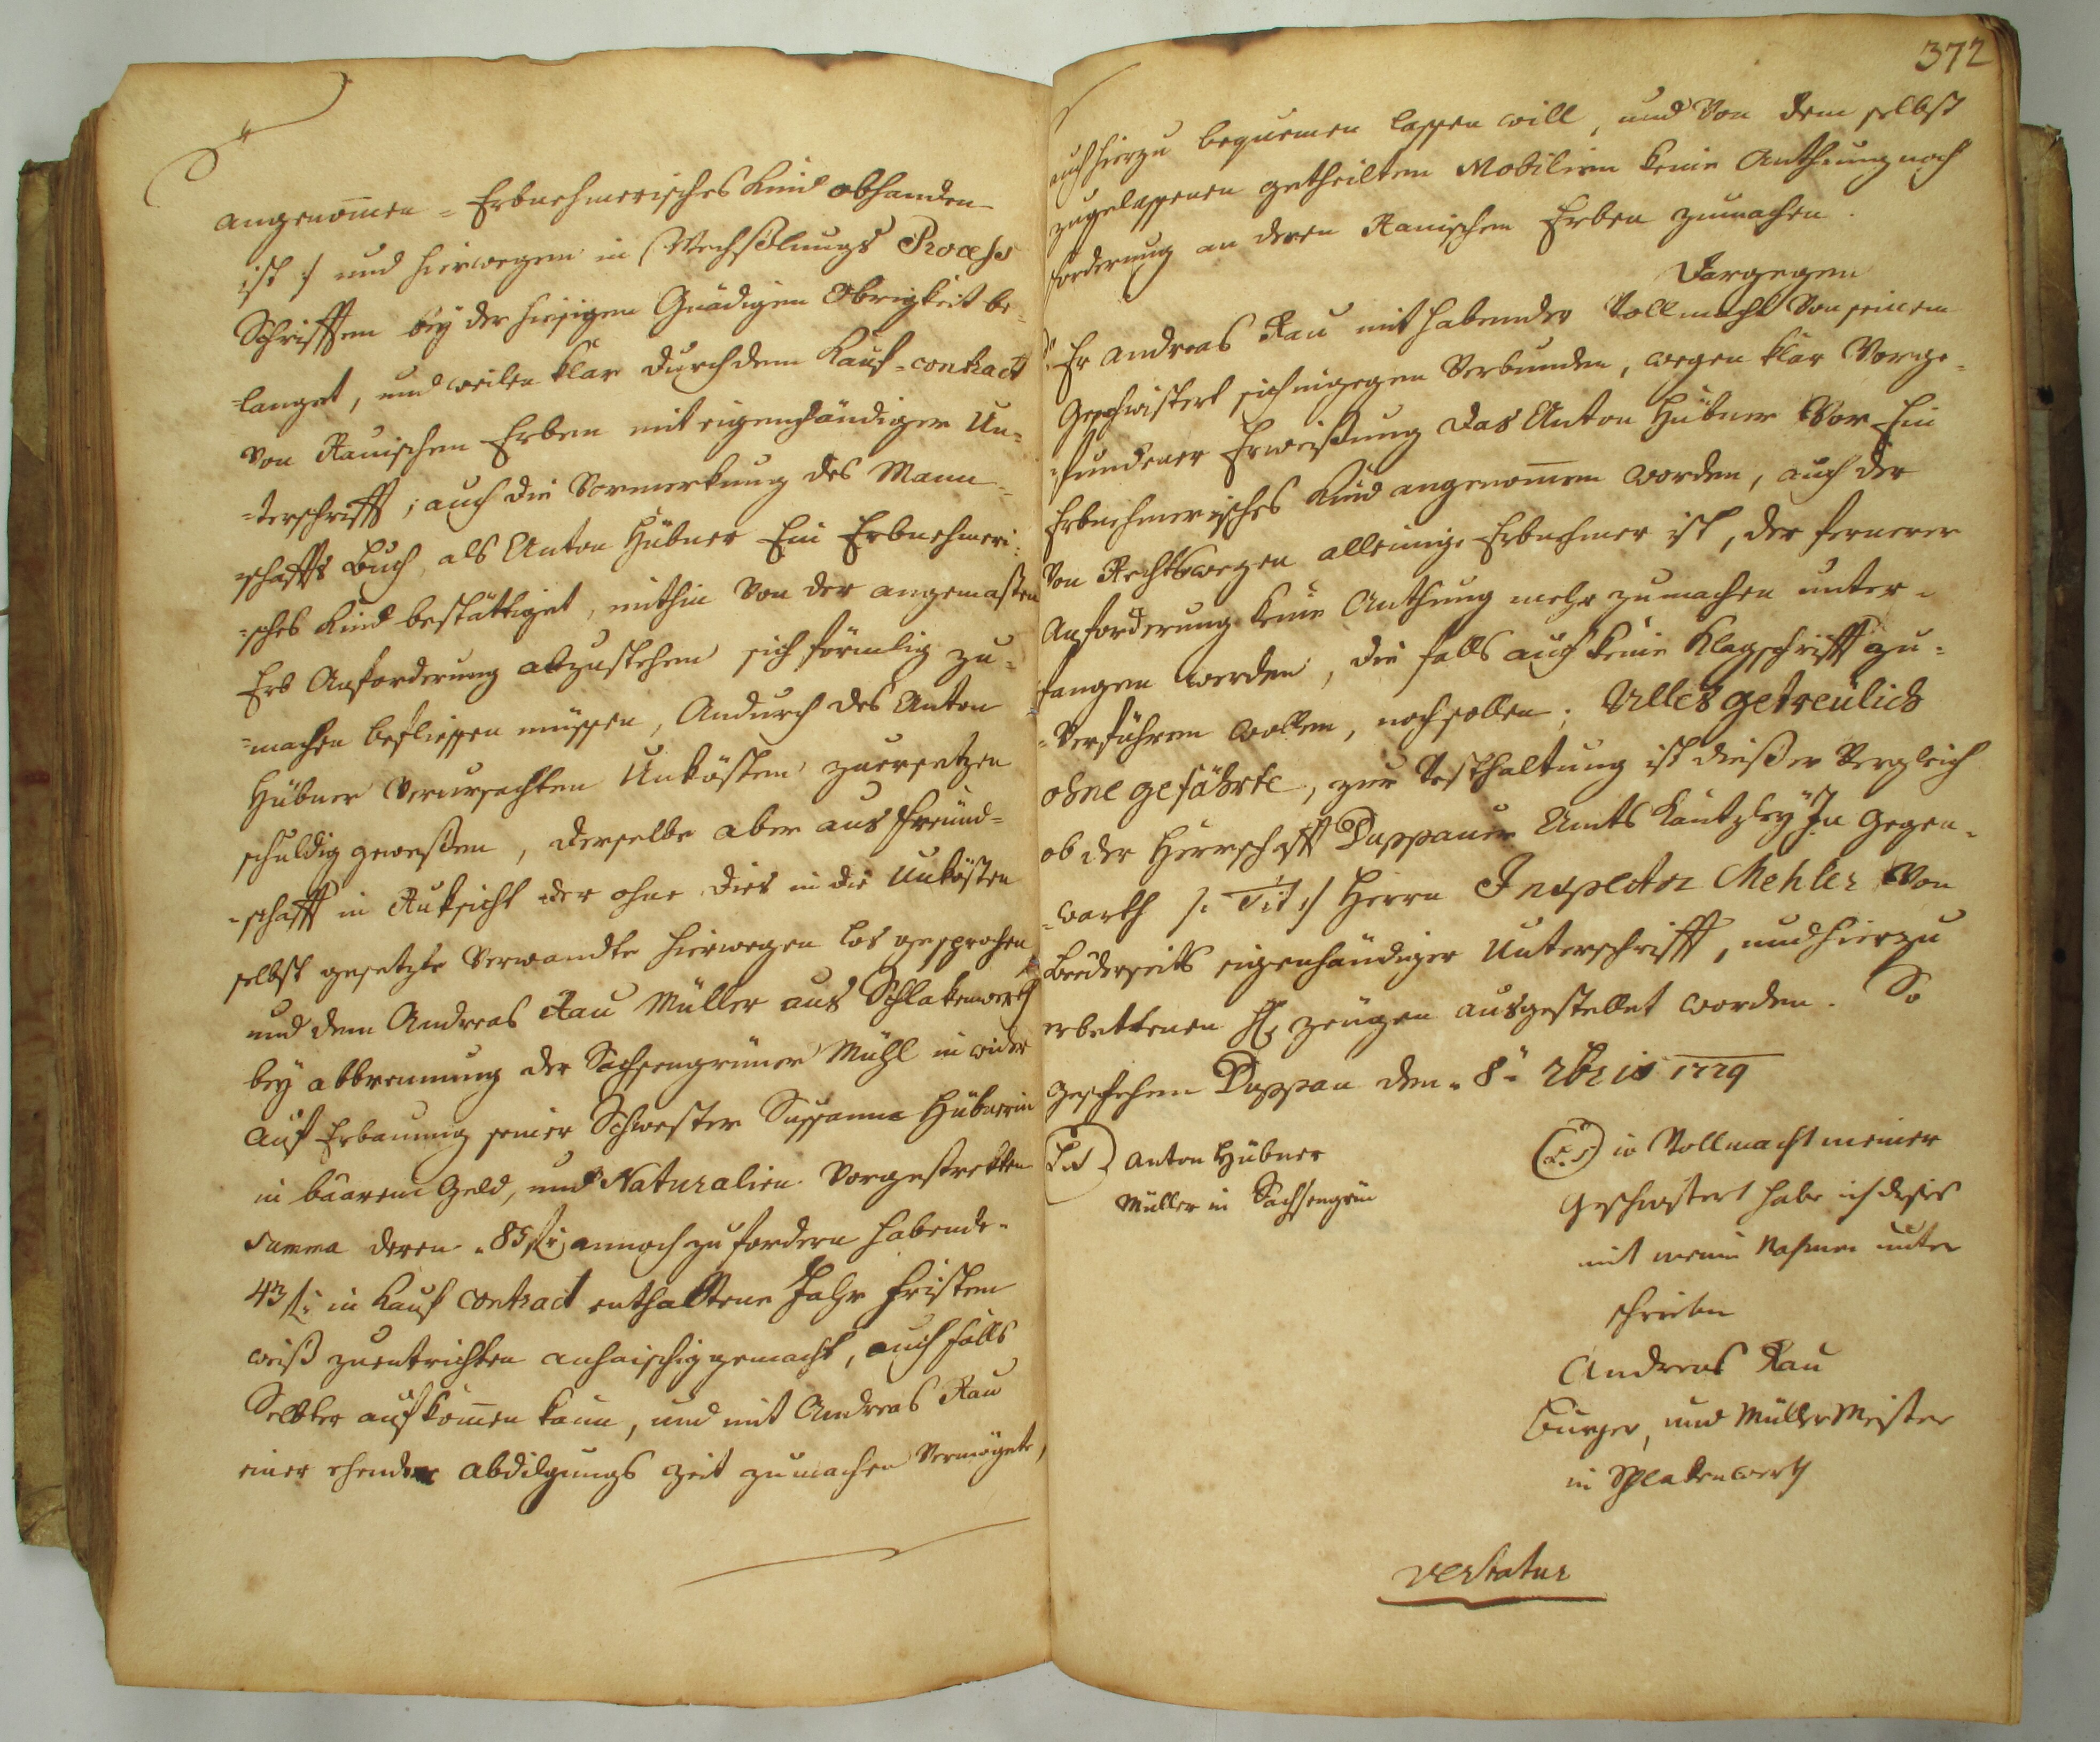 angenom̅en = Erbnehmerisches Kind obhanden
ist :/ und hierwegen in Wechßlungs Process
Schrifften bey der hiesigen Gnädigen Obrigkeit be=
=langet, und weilen klar durch dem Kauf=contract
von Rauischen Erben mit eigenhändiger Un=
=terschrifft; auch die Vormerkung des Mann=
=schaffts Buch, als Anton Hübner Ein Erbnehmeri=
=sches Kind bestättiget, mithin von der angemasten
Erb Anforderung abzustehen sich förmlig zu=
=machen befliessen müssen, Andurch des Anton
Hübner verursachten Unkösten zuersetzen
schuldig geweßen, derselbe aber aus Freund=
=schafft in Ruksicht der ohne dies in die Unkösten
selbst gesetzte Verwandte hierwegen los gesprochen
und dem Andreas Rau Müller aus Schlakenwerth
bey abbrennung der Sachsengrüner Mühl in wider
Auf Erbauung seiner Schwester Sussanna Hübnerin
in baarem Geld, und Naturalien vorgestrekten
Summa deren 85 fl: annoch zu fordern habende
43 fl: in Kauf Contract enthaltene Jahr Fristen
weiß zuentrichten anhaischig gemacht, auch falls
Selbter aufkom̅en kann, und mit Andreas Rau
einer ehender abdilgungs zeit zu machen vermögete,
372
auch hierzu bequemen lassen will, und von dem selbst
zugelassenen getheilten Mobilien keine Anthuung noch
forderung an deren Rauischen Erben zumachen.
Dargegen
Er Andreas Rau mit habender Vollmacht von seinem
Geschwistert sich eingegen verbunden, wegen klar vorge=
=fundener Erweißung das Anton Hübner vor Ein
Erbnehmerisches Kind angenom̅en worden, auch der
von Rechtswegen alleinige Erbnehmer ist, der fernerer
Anforderung keine Anthuung mehr zumachen unter=
fangen werden, die falls auch keine Klagschrifft zu=
=verführen wollen, noch sollen; Alles getreülich
ohne gefährte, zur Vesthaltung ist dießer Vergleich
ob der Herrschafft Duppauer Amts Kantzley In Gegen=
=warth /: Tit :/ Herrn Inspector Mehler von
Beederseits eigenhändiger Unterschrifft, und hierzu
erbettenen H: zeugen ausgestellet worden. So
geschehen Duppau den 8ten 1779
(L.S) Anton Hübner
Müller in Sachsengrün
(L.S) in Vollmacht meiner
Geschwistert habe ich dieses
mit meine Nahmen unter
schrieben
Andreas Rau
Burger, und Müller Meister
in Schlakenwerth
vertatur